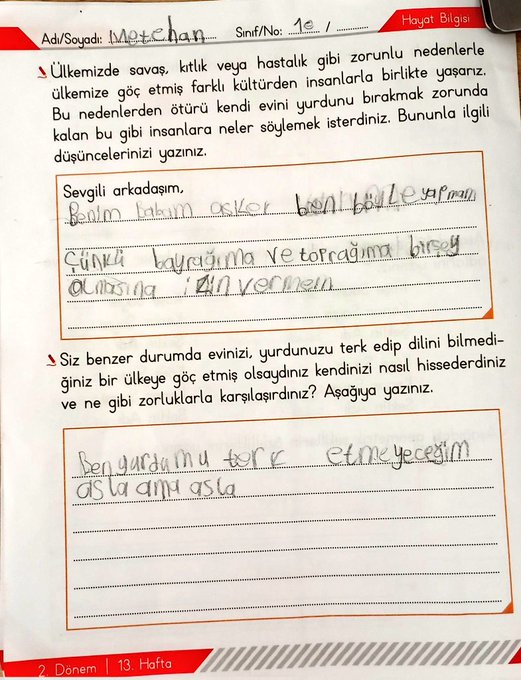 Hayat Bilgisi
Adı/Soyadı: Metehan Sınıf/No: 1e / 
Ülkemizde savaş, kıtlık veya hastalık gibi zorunlu nedenlerle
ülkemize göç etmiş farklı kültürden insanlarla birlikte yaşarız.
Bu nedenlerden ötürü kendi evini yurdunu bırakmak zorunda
kalan bu gibi insanlara neler söylemek isterdiniz. Bununla ilgili
düşüncelerinizi yazınız.
Sevgili arkadaşım,
Benim babam asker ben böyle yapmam
Çünkü bayrağıma ve toprağıma birşey
olmasına izin vermem
Siz benzer durumda evinizi, yurdunuzu terk edip dilini bilmedi-
ğiniz bir ülkeye göç etmiş olsaydınız kendinizi nasıl hissederdiniz
ve ne gibi zorluklarla karşılaşırdınız? Aşağıya yazınız.
Ben yurdumu terk etmeyeceğim
asla ama asla
2. Dönem | 13. Hafta